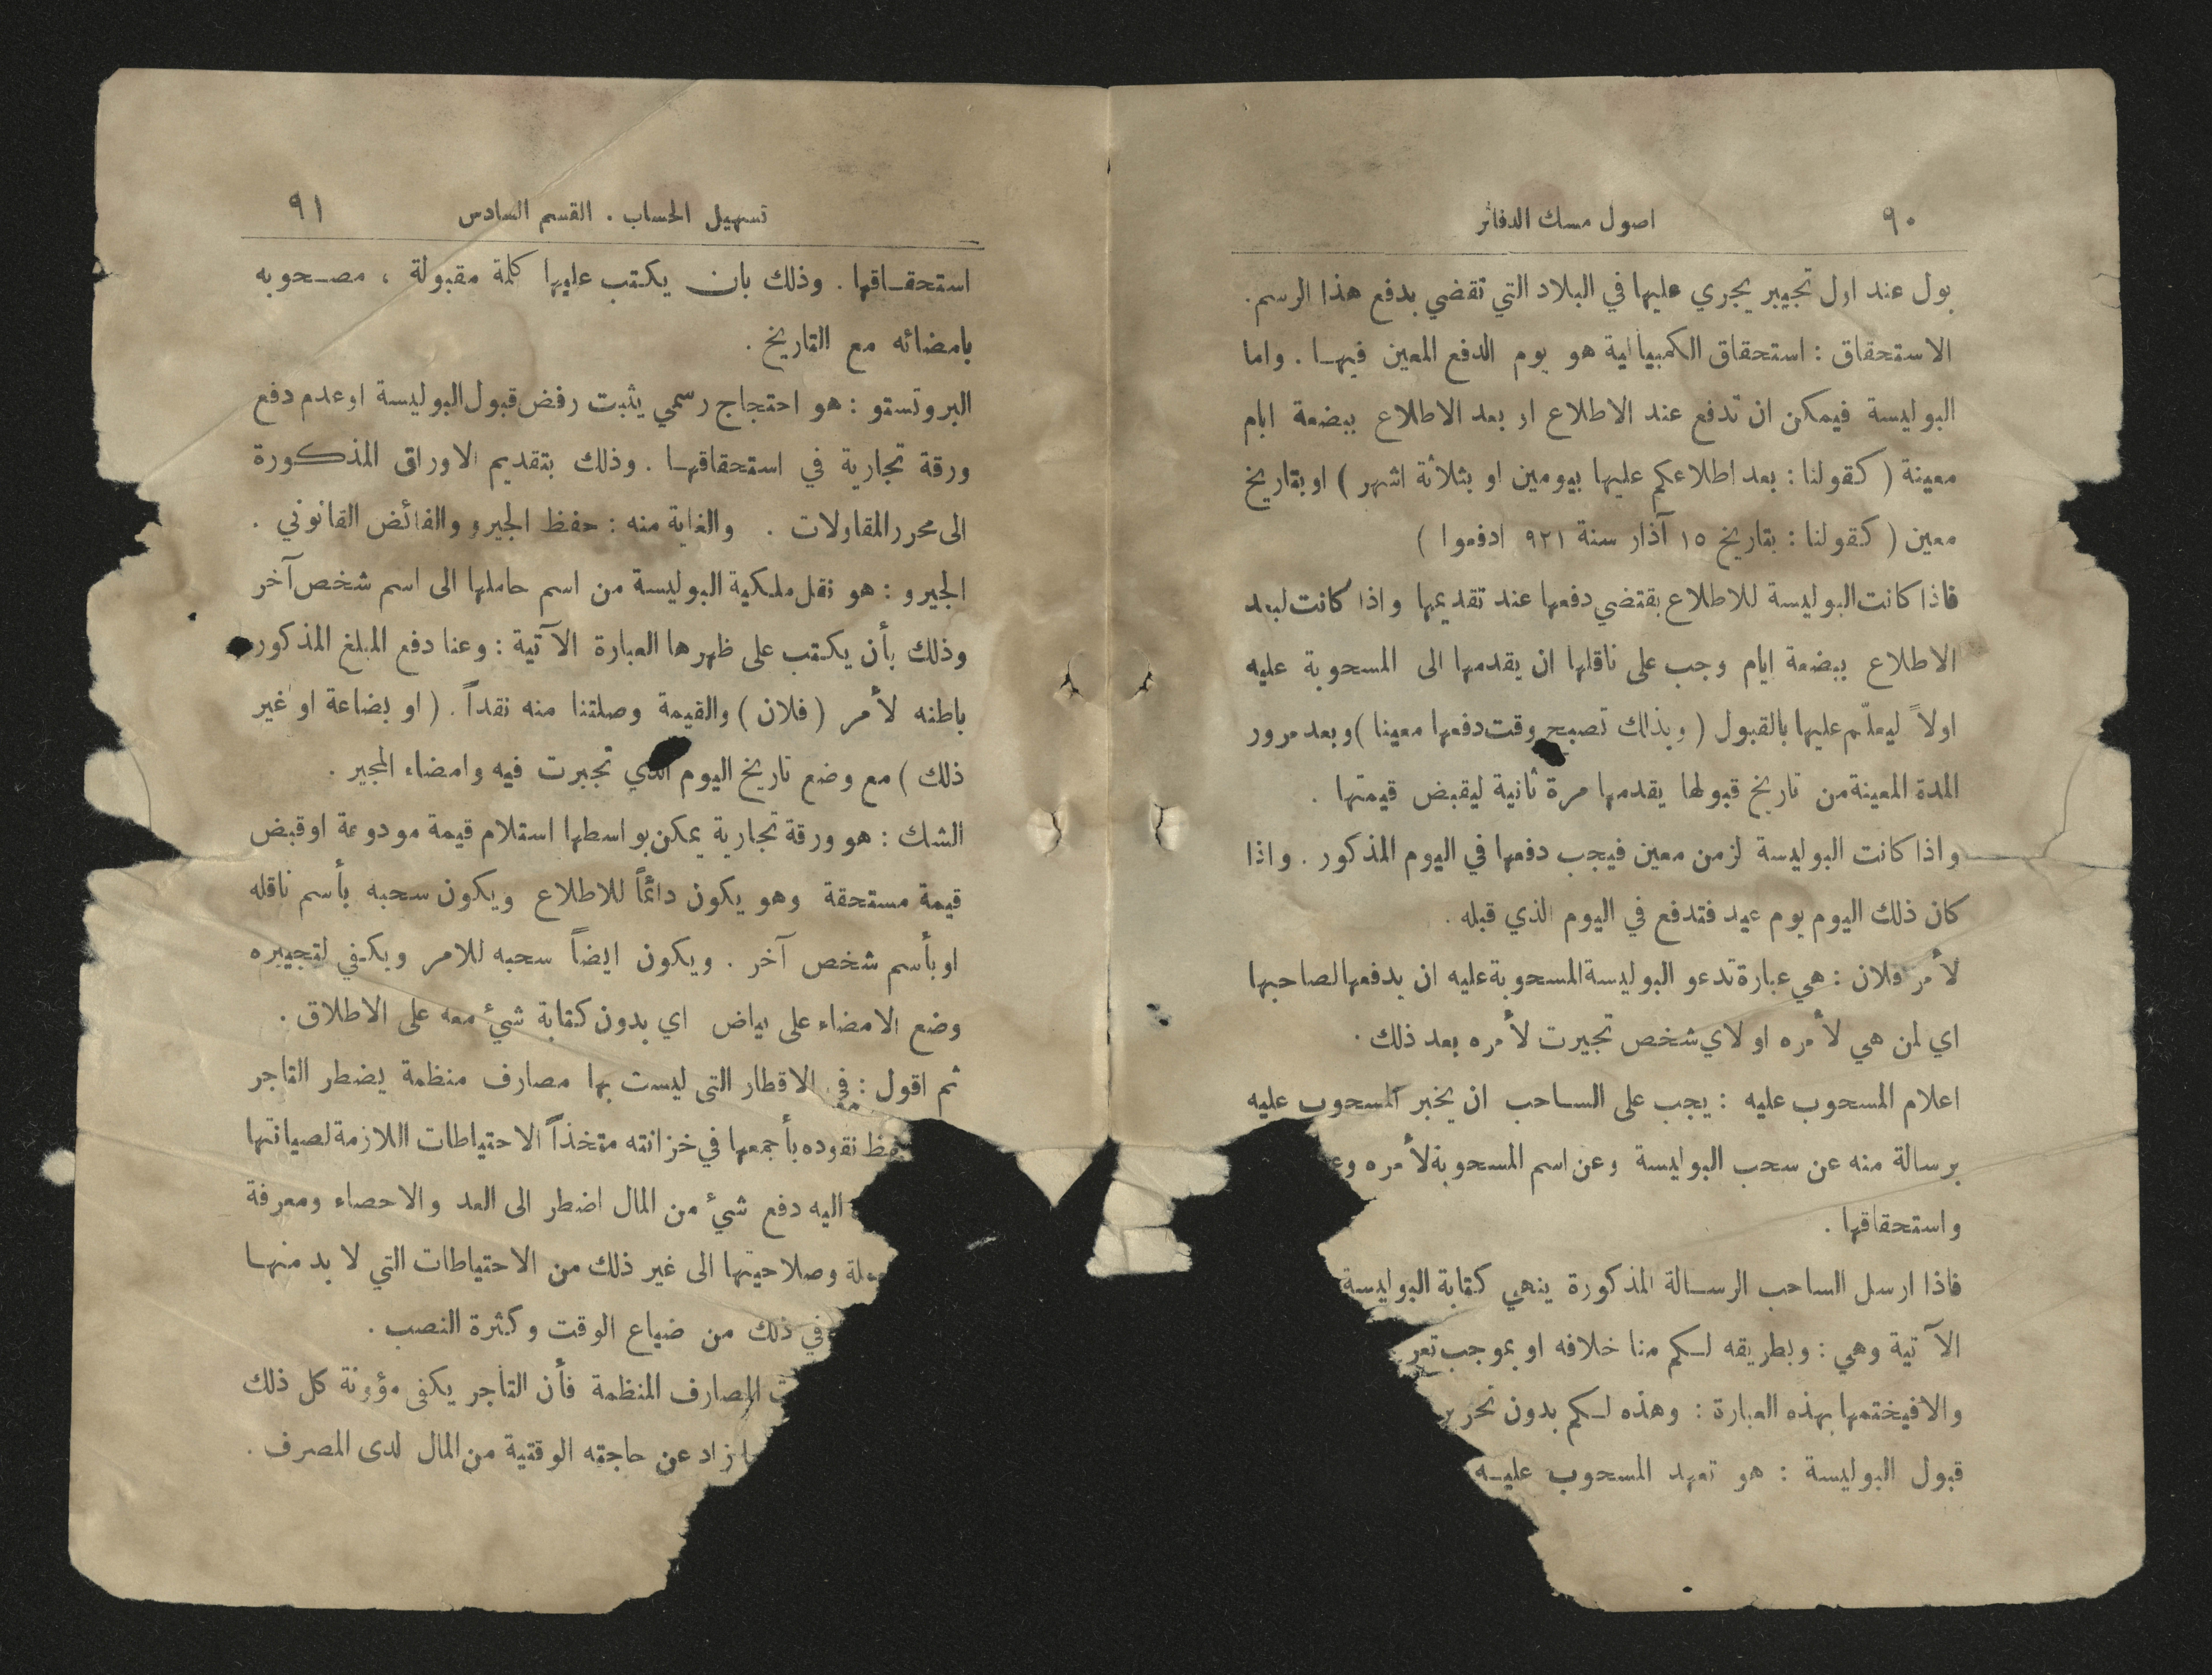 ٩٠
اصول مسك الدفاتر
بول عند اول تجيير يجري عليها في البلاد التي تقضي بدفع هذا الرسم.
الاستحقاق : استحقاق الكمبيالية هو يوم الدفع المعين فيها . واما
البوليسة فيمكن ان تدفع عند الاطلاع او بعد الاطلاع ببضعة ايام
معينة ( كقولنا : بعد اطلاعكم عليها بيومين او بثلاثة اشهر ) او بتاريخ
معين ( كقولنا : بتاريخ ١٥ آذار سنة ٩٢١ ادفعوا )
فاذا كانت البوليسة للاطلاع يقتضي دفعها عند تقديمها واذا كانت لبعد
الاطلاع ببضعة ايام وجب على ناقلها ان يقدمها الى المسحوبة عليه
اولاً ليعلّم عليها بالقبول ( وبذلك تصبح وقت دفعها معينا ) وبعد مرور
المدة المعينة من تاريخ قبولها يقدمها مرة ثانية ليقبض قيمتها .
واذا كانت البوليسة لزمن معين فيجب دفعها في اليوم المذكور . واذا
كان ذلك اليوم يوم عيد فتدفع في اليوم الذي قبله .
لأمر فلان : هي عبارة تدعو البوليسة المسحوبة عليه ان يدفعها لصاحبها
اي لمن هي لأمره او لاي شخص تجيرت لأمره بعد ذلك .
اعلام المسحوب عليه : يجب على الساحب ان يخبر المسحوب عليه
برسالة منه عن سحب البوليسة وعن اسم المسحوبة لأمره
واستحقاقها .
فاذا ارسل الساحب الرسالة المذكورة ينهي كتابة البوليسة
الآتية وهي : وبطريقه لكم منا خلافه او بموجب
والا فيختمها بهذه العبارة : وهذه لكم بدون
قبول البوليسة : هو تعهد المسحوب عليه
تسهيل الحساب . القسم السادس
٩١
استحقاقها . وذلك بان يكتب عليها كلمة مقبولة ، مصحوبه
بامضائه مع التاريخ .
البروتستو : هو احتجاج رسمي يثبت رفض قبول البوليسة او عدم دفع
ورقة تجارية في استحقاقها . وذلك بتقديم الاوراق المذكورة
الى محرر المقاولات . والغاية منه : حفظ الجيرو والفائض القانوني .
الجيرو : هو نقل ملكية البوليسة من اسم حاملها الى اسم شخص آخر
وذلك بأن يكتب على ظهرها العبارة الآتية : وعنا دفع المبلغ المذكور
باطنه لأمر ( فلان ) والقيمة وصلتنا منه نقداً . ( او بضاعة او غير
ذلك ) مع وضع تاريخ اليوم الذي تجيرت فيه وامضاء المجير .
الشك : هو ورقة تجارية يمكن بواسطها استلام قيمة مودوعة او قبض
قيمة مستحقة وهو يكون دائماً للاطلاع ويكون سحبه بأسم ناقله
او بأسم شخص آخر . ويكون ايضاً سحبه للامر ويكفي لتجييره
وضع الامضاء على بياض اي بدون كتابة شيء معه على الاطلاق .
ثم اقول : في الاقطار التي ليست بها مصارف منظمة يضطر التاجر
نقوده بأجمعها في خزانته متخذاً الاحتياطات اللازمة لصيانتها
اليه دفع شيء من المال اضطر الى العد والاحصاء ومعرفة
وصلاحيتها الى غير ذلك من الاحتياطات التي لا بد منها
في ذلك من ضياع الوقت وكثرة النصب .
المصارف المنظمة فأن التاجر يكفى مؤونة كل ذلك
زاد عن حاجته الوقتية من المال لدى المصرف .